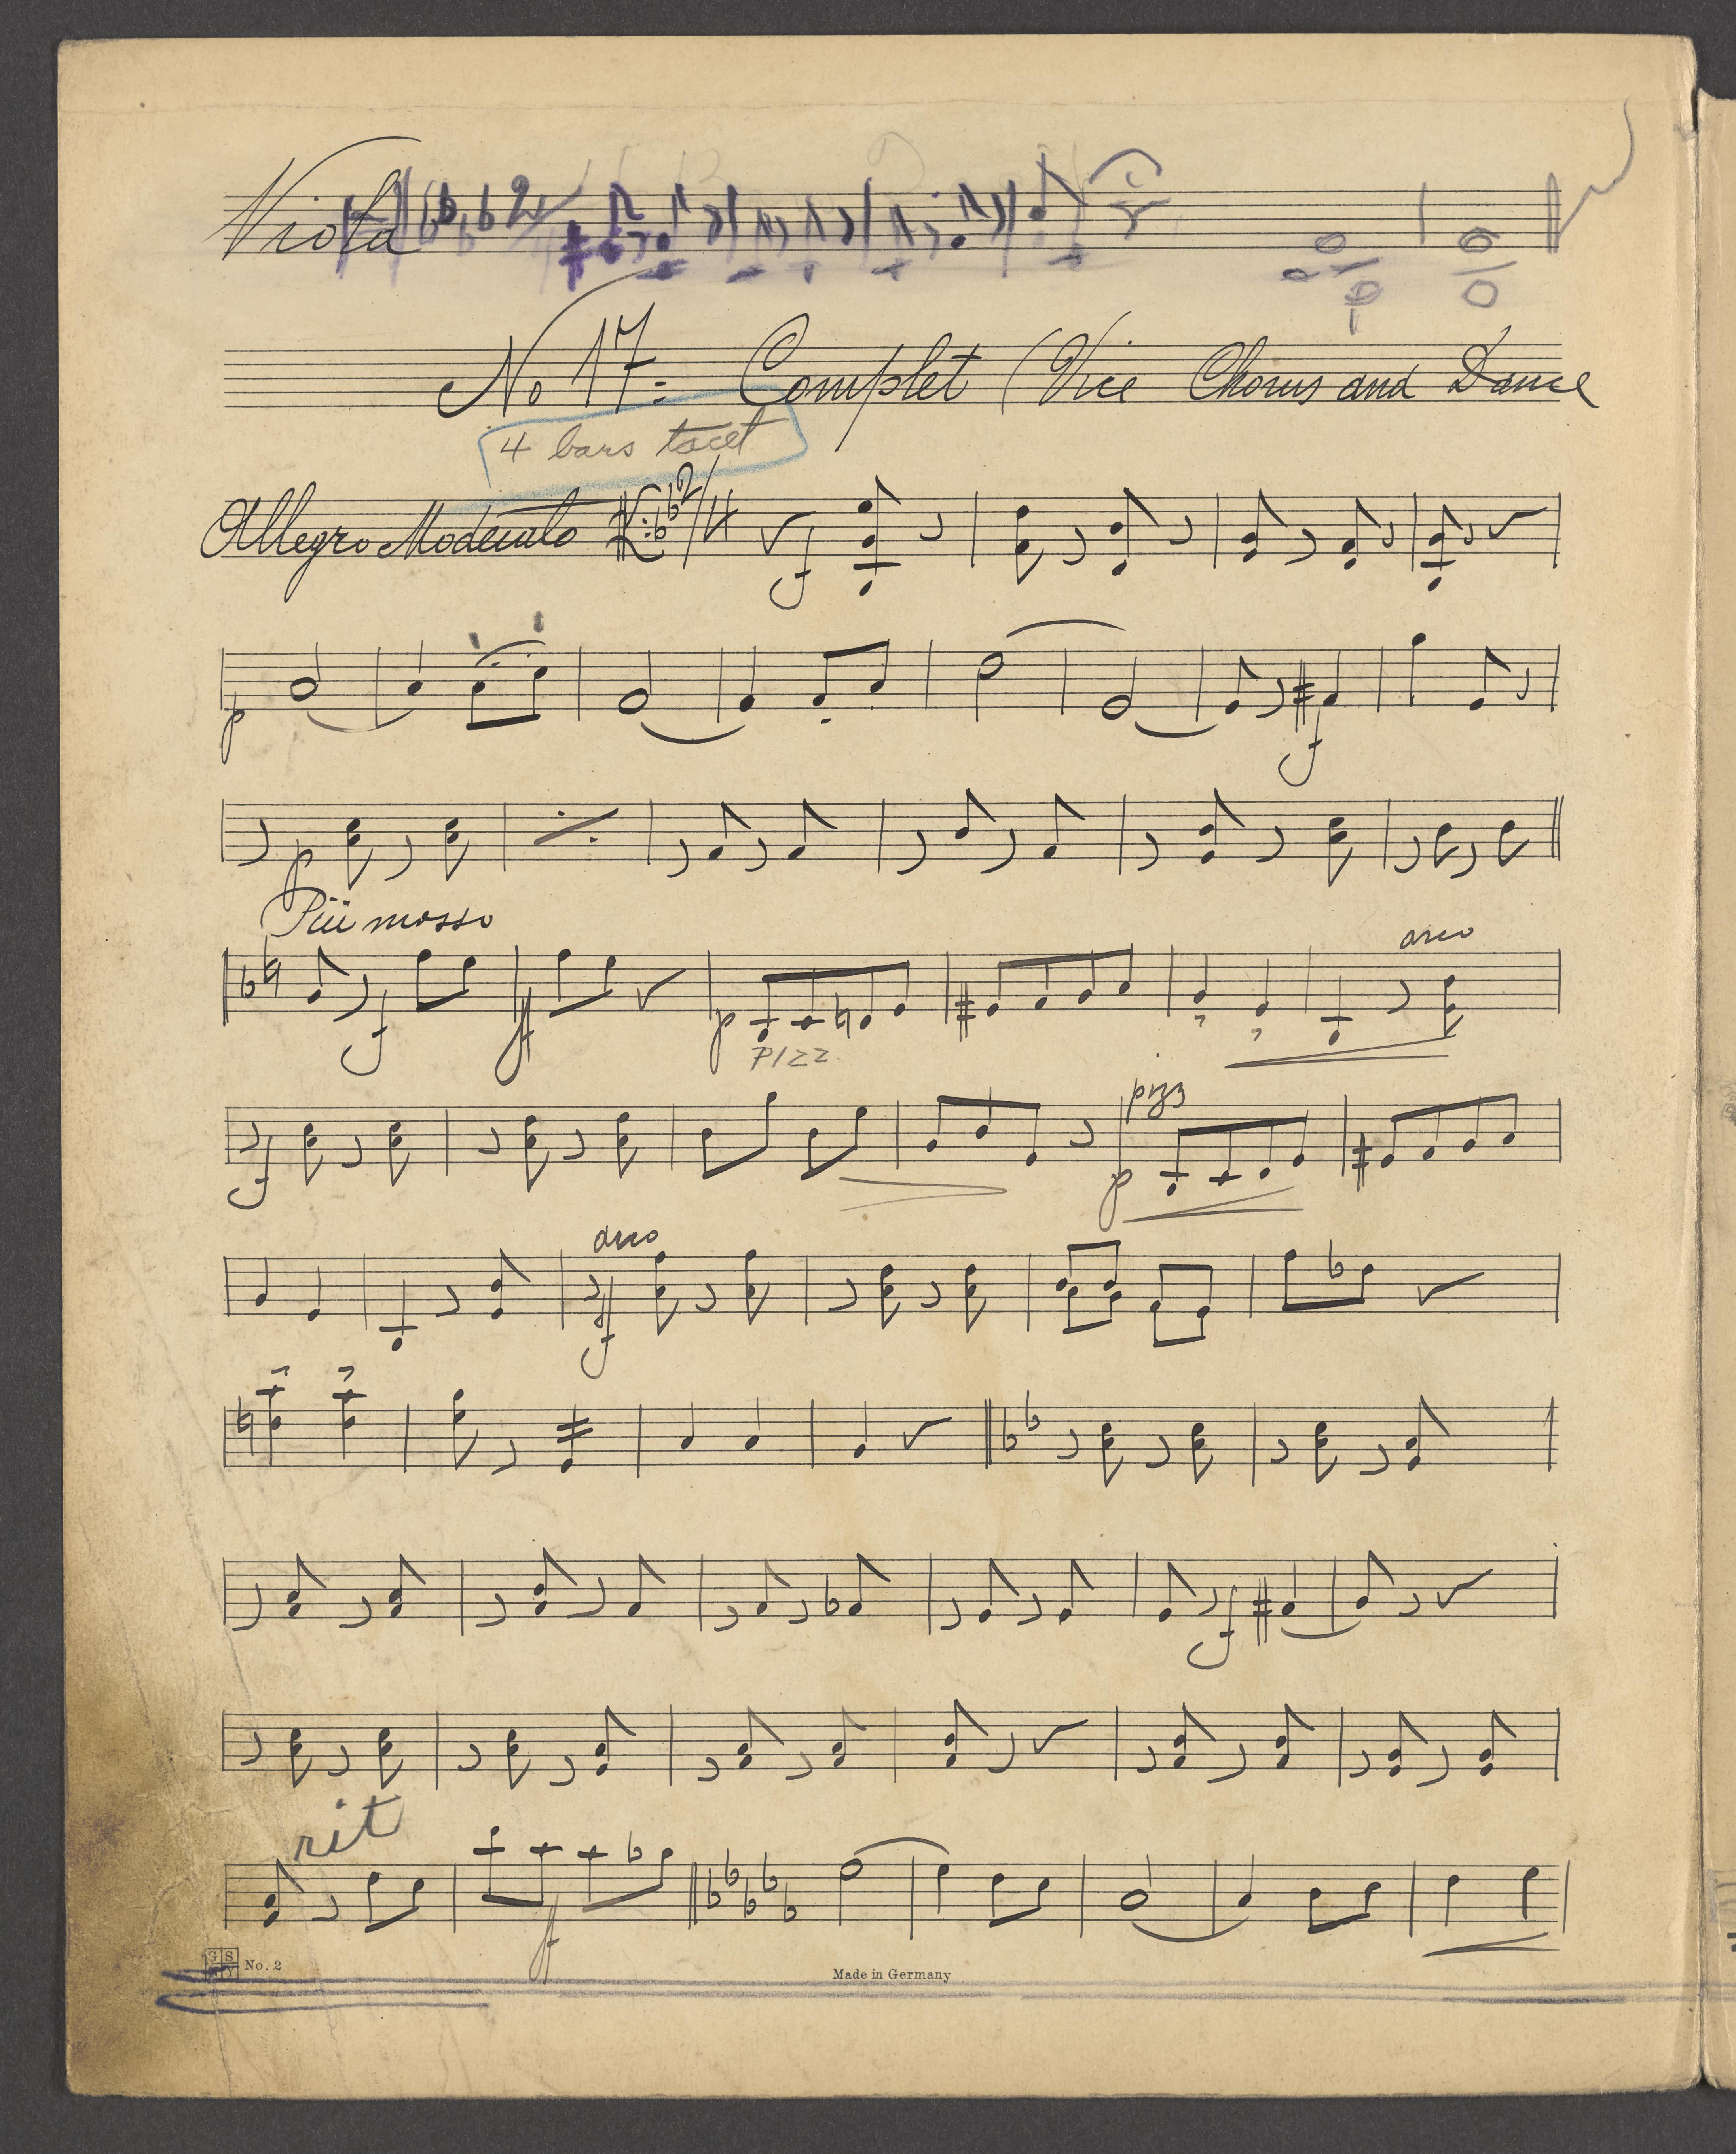 Viola
No 17: Complet (Vice Chorus and Dance
4 bars tacet
Allegro Moderato 2/4
f
p
f
p
Più mosso
arco
f ff p
PIZZ.
pizz
f p
arco
f
f
rit
ff
GS No. 2
Made in Germany